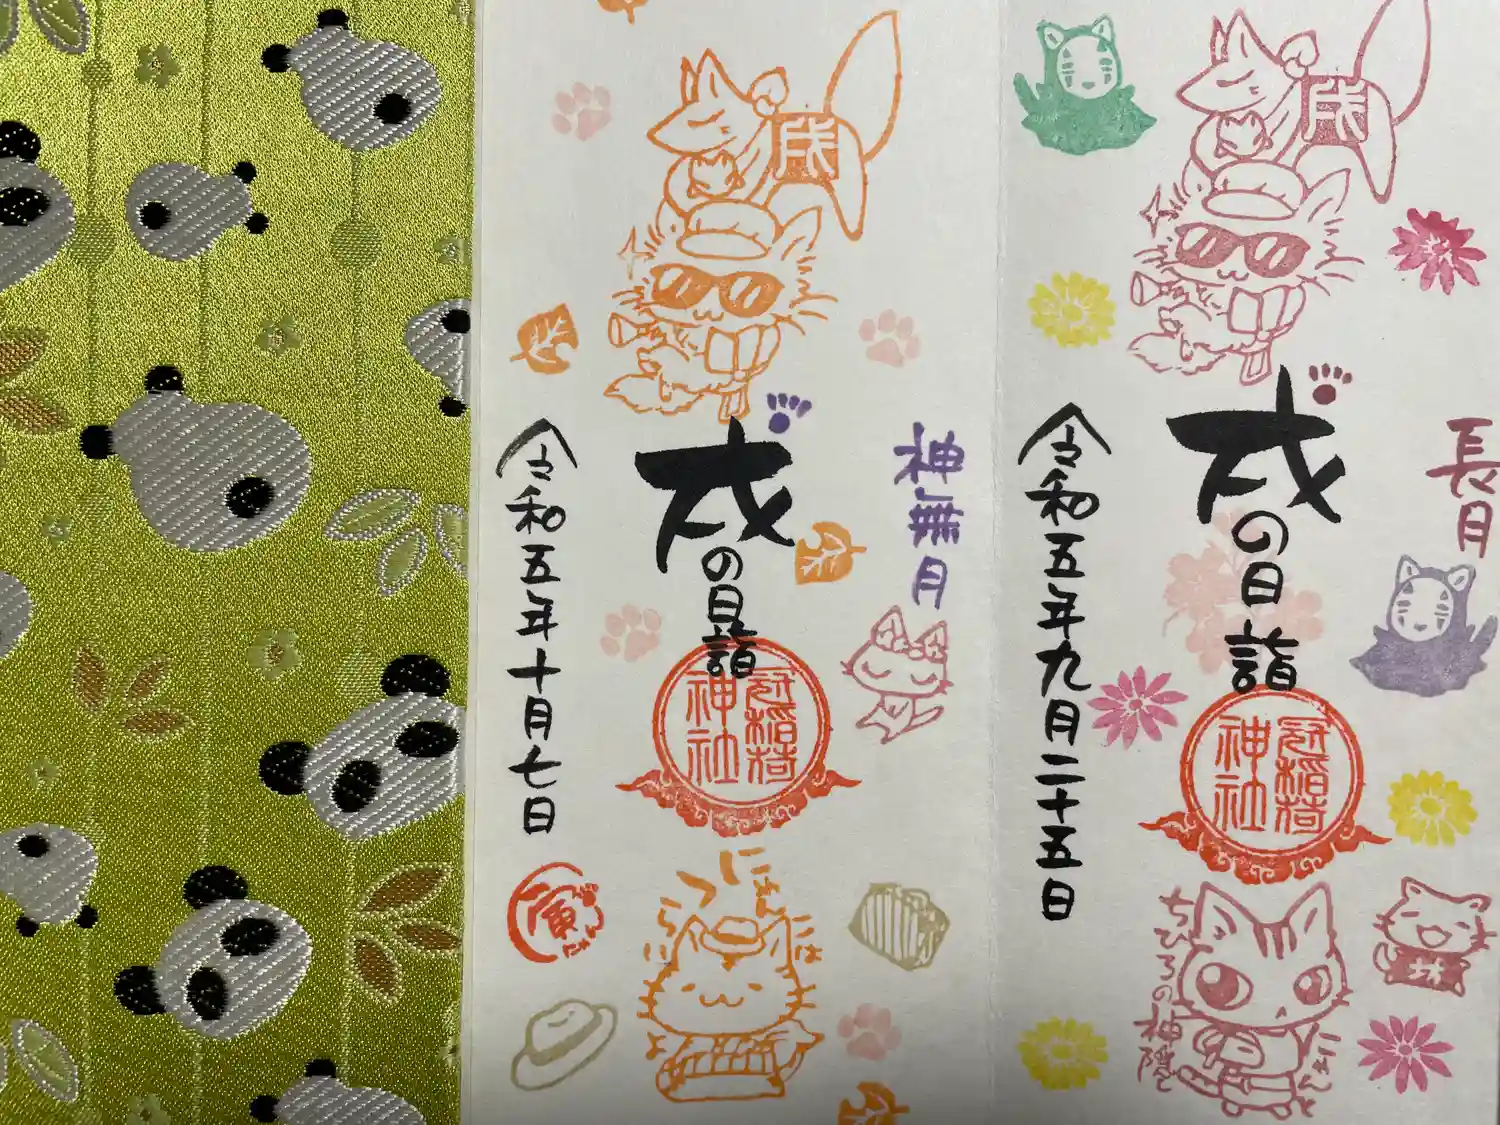 戌
長月
戌
の
日
詣
冠稲荷
神社
令和五年九月二十五日
坊
ちひろの神隠し
にゃんと
戌
神無月
戌
の
日
詣
冠稲荷
神社
令和五年十月七日
寅
にゃん